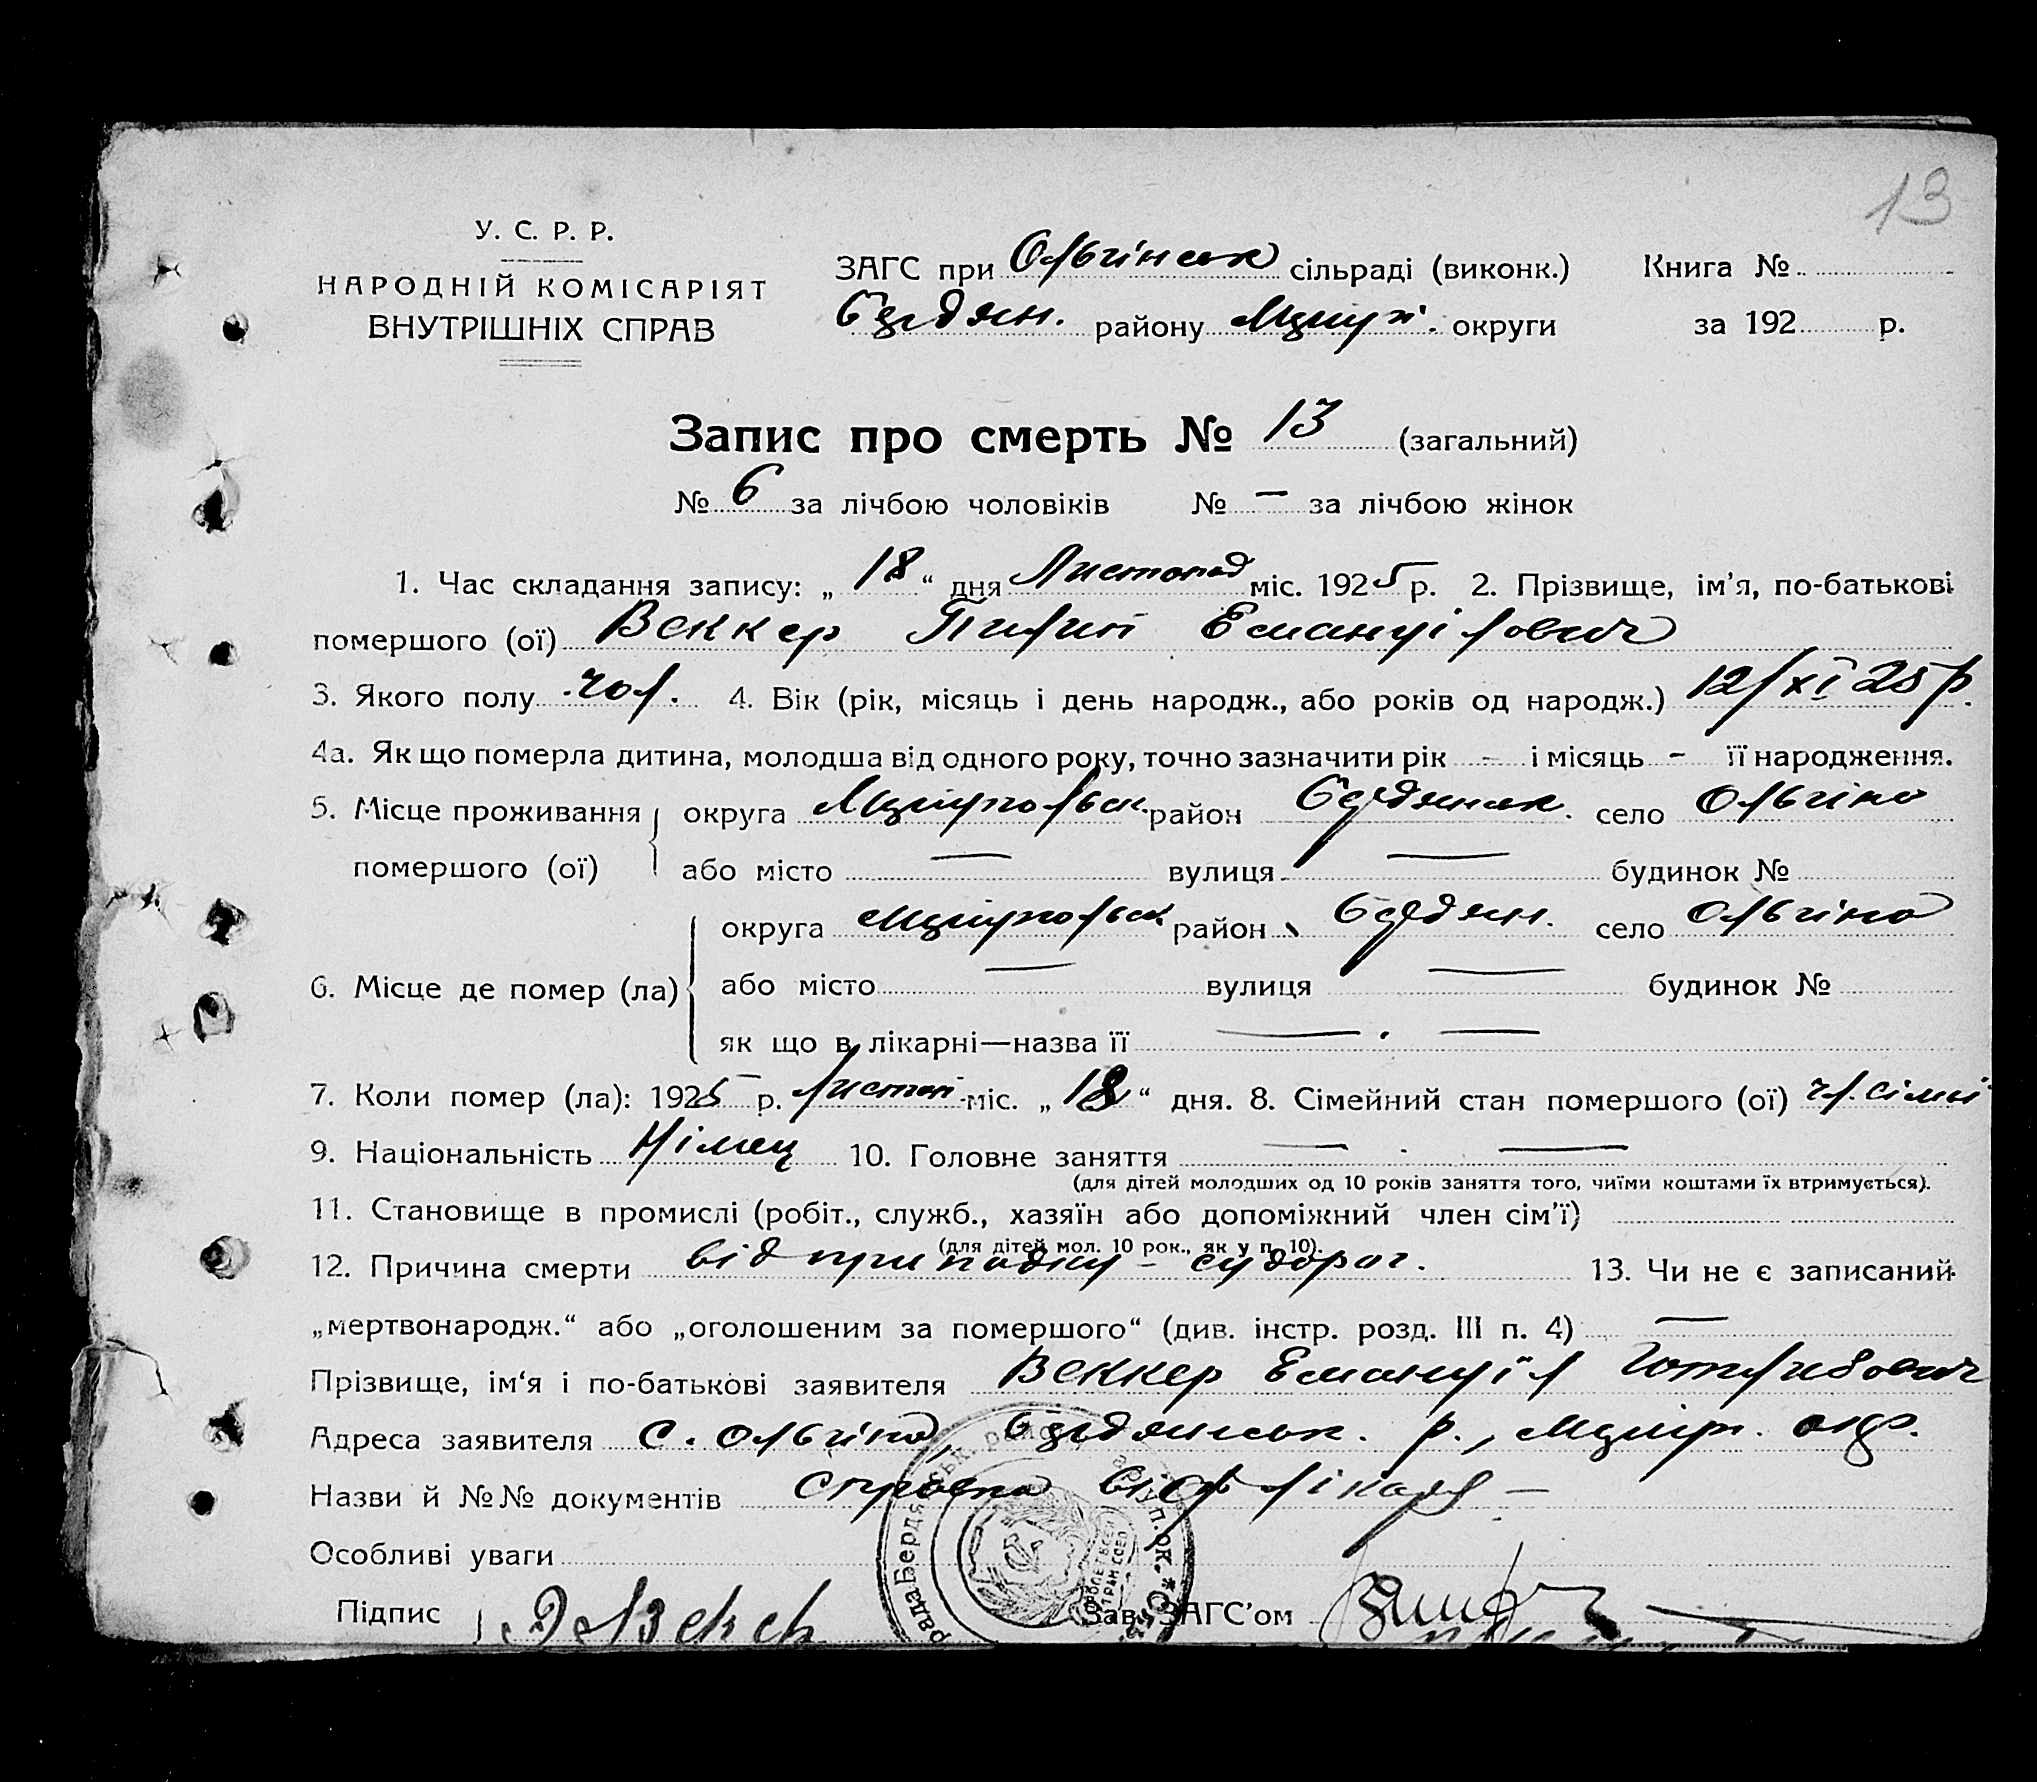 13
У. С. Р. Р.
НАРОДНІЙ КОМІСАРІЯТ
ВНУТРІШНІХ СПРАВ
ЗАГС при Ольгінськ сільраді (виконк.) Книга №
Бердян. району Маріуп. округи за 192 р.
Запис про смерть № 13 (загальний)
№ 6 за лічбою чоловіків № — за лічбою жінок
1. Час складання запису: „ 18 “ дня Листопад міс. 1925 р. 2. Прізвище, ім’я, по-батькові
помершого (ої) Веккер Пилип Емануілович
3. Якого полу чол. 4. Вік (рік, місяць і день народж., або років од народж.) 12/XI 25 р.
4а. Як що померла дитина, молодша від одного року, точно зазначити рік - і місяць - її народження.
5. Місце проживання округа Маріупольськ. район Бердянськ. село Ольгіно
помершого (ої) або місто — вулиця — будинок №
округа Маріупольськ. район Бердян. село Ольгіно
6. Місце де помер (ла) або місто — вулиця — будинок №
як що в лікарні—назва її — . —
7. Коли помер (ла): 1925 р. Листоп. міс. „ 18 “ дня. 8. Сімейний стан помершого (ої) чл. сімьі
9. Національність Німец 10. Головне заняття — . —
(для дітей молодших од 10 років заняття того, чиїми коштами їх втримується).
11. Становище в промислі (робіт., служб., хазяїн або допоміжний член сім’ї)
(для дітей мол. 10 рок., як у п. 10).
12. Причина смерти від припадку - судорог. 13. Чи не є записаний
„мертвонародж.“ або „оголошеним за помершого“ (див. інстр. розд. III п. 4) —
Прізвище, ім‘я і по-батькові заявителя Веккер Емануїл Готлибович
Адреса заявителя с. Ольгіно, Бердянськ. р., Маріуп. окр.
Назви й №№ документів справка від лікаря —
Особливі уваги
Підпис Зав. ЗАГС’ом